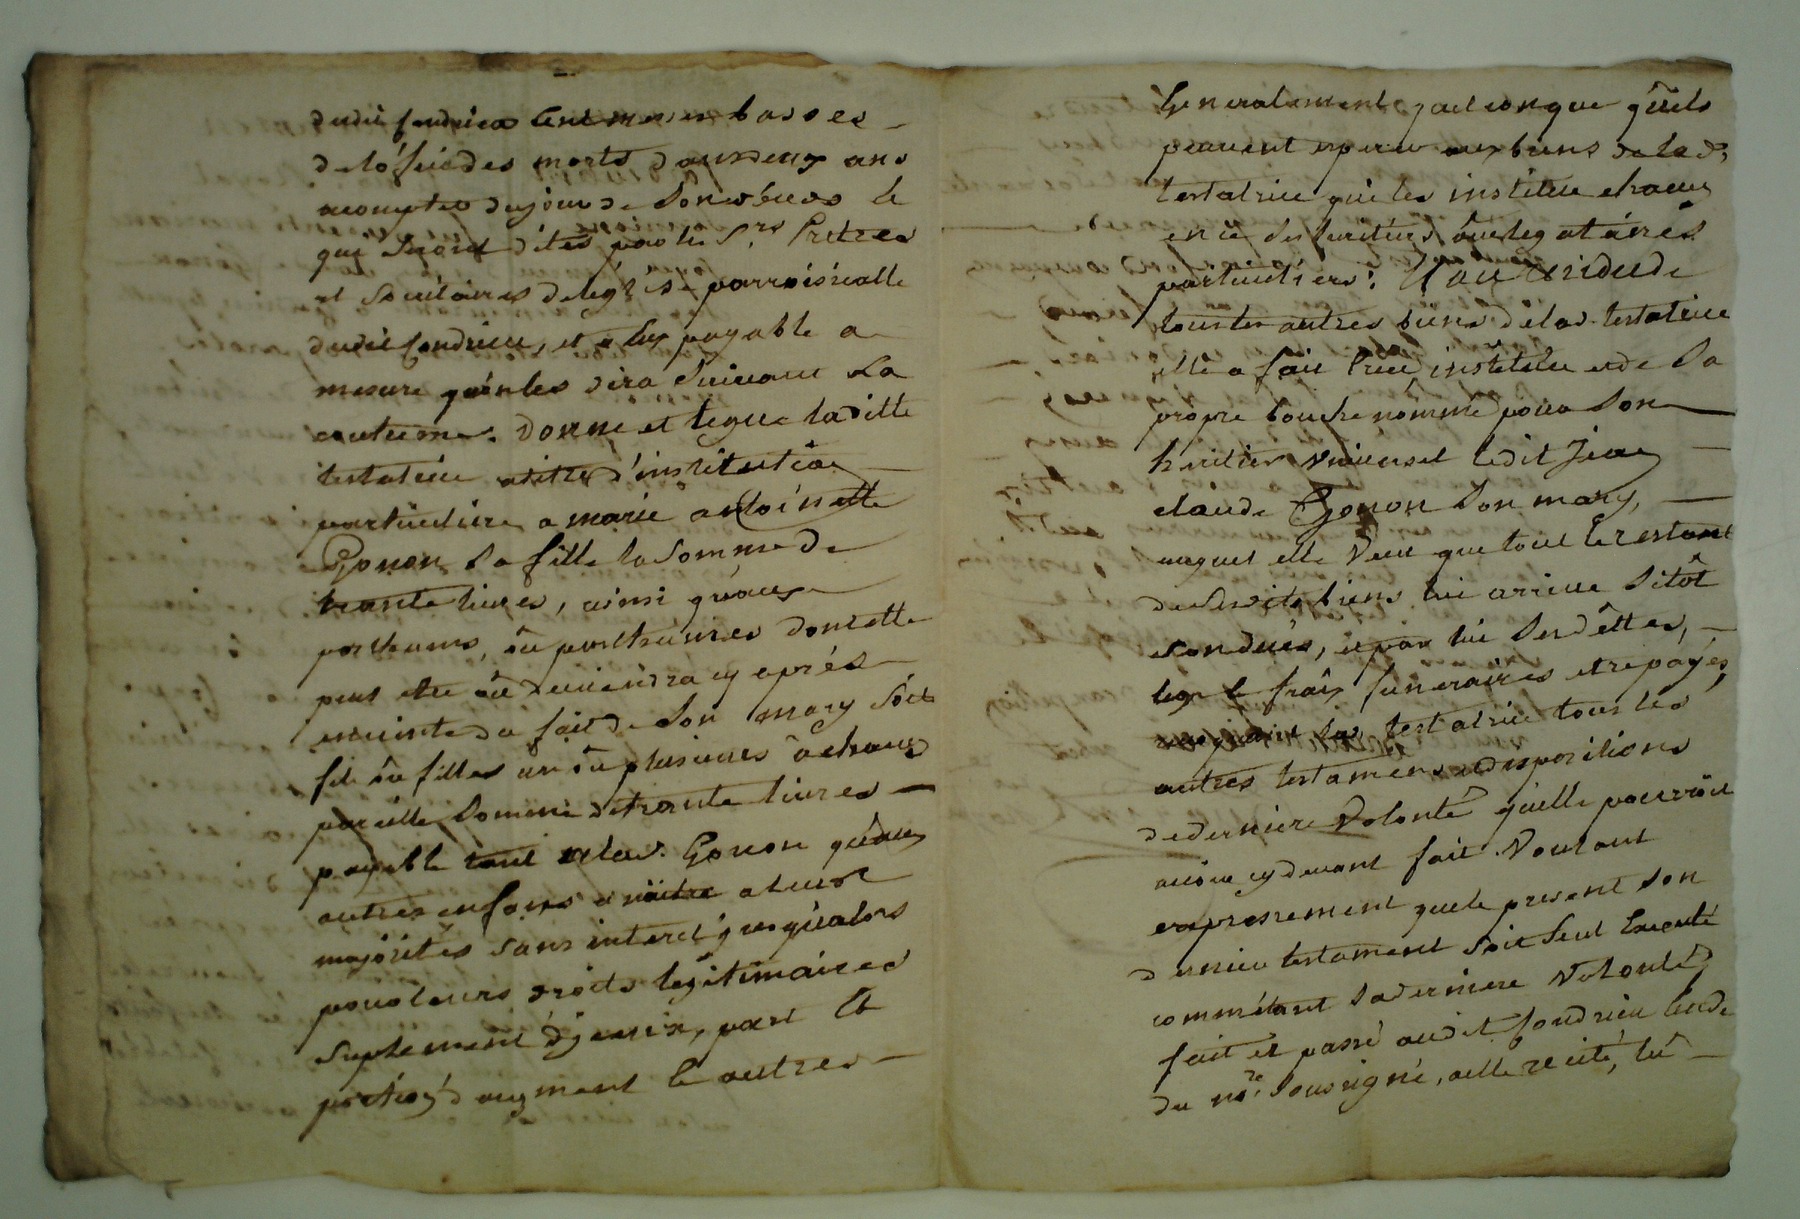 dudit condrieu cent messes basses
de l'ófice des morts dans deux ans
acompter du jour de son décés le
qui seront dites par les Srs Prêtres
et societaires de leglise parroissialle
dudit Condrieu, et a eux payable a
mesure qu'on les dira suivant la
coutume. Donne et legue laditte
testatrice atittre d'institution
particuliere a marie antoinette
Gonon sa fille la somme de
trante livres, ainsi qu'aux
posthume, ou posthumes dont elle
peut etre ou deviendra cy aprés
enceinte du fait de son mary soit
fils ou filles un ou plusieurs a chacun
pareille somme de trante livres
payable tant alad. Gonon qu'aux
autres enfans a naitre a leur
majórités sans interet jusqu'alors
pour leurs droits legitimaires
suplement d'yceux, part et
portion d'augment et autres
Generalement quelconque qu'ils
peuvent esperer aux biens de lad.
testatrice qui les institue chacun
en ce ses heritiers ou legatairés
particuliers: Et au residu de
tous les autres biens de lad. testatrice
elle a fait créé, institué et de sa
propre bouche nommé pour son
héritier universel ledit Jean
claude Gonon son mary,
auquel elle veut que tout le restant
de sesdits biens lui arrive sitôt
son decés, et par lui ses dêttes,
legs et frais funeraires etre payés,
lad. testatrice tous les
autres testamens et dispositions
de derniere Volonté qu'elle pourroit
avoir cy devant fait. Voulant
expressement que le present son
dernier testament soit seul executé
commétant sa derniere volonté,
fait et passé audit Condrieu
du nore. soussigné, a elle recité, lu